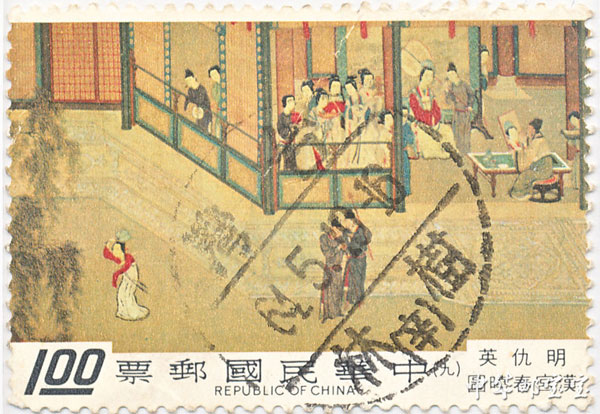 明仇英
漢宮春曉圖(九)
中華民國郵票
REPUBLIC OF CHINA
1.00
樹林